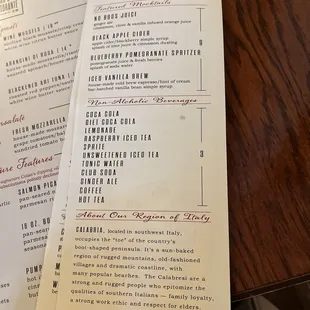 RISTORANTE
WINE MUSSELS - 10
white wine butter sauce
ARANCINI DI ROSA - 14
BLACKENED AHI TUNA
FRESH MOZZARELLA
house-made
Features
SALMON PICA
pan-seared
16 OZ. BO
pan-seared
PUMP
house-m
Featured Mocktails
NO BOOS JUICE
ginger ale, clove & vanilla infused orange juice
cinnamon
BLACK APPLE CIDER
apple cider/blackberry simple syrup
splash of lime juice & cinnamon dusting
9
BLUEBERRY POMEGRANATE SPRITZER
pomegranate juice & fresh berries
splash of soda water
ICED VANILLA BREW
house-made cold brew espresso/hint of cream
bar-batched vanilla bean simple syrup
Non-Alcoholic Beverages
COCA COLA
DIET COCA COLA
LEMONADE
RASPBERRY ICED TEA
SPRITE
UNSWEETENED ICED TEA
3
TONIC WATER
CLUB SODA
GINGER ALE
COFFEE
HOT TEA
About Our Region of Italy
CALABRIA, located in southwest Italy,
occupies the "toe" of the country's
boot-shaped peninsula. It's a sun-baked
region of rugged mountains, old-fashioned
villages and dramatic coastline, with
many popular beaches. The Calabresi are
strong and rugged people who epitomize the
qualities of southern Italians — family loyalty,
a strong work ethic and respect for elders.